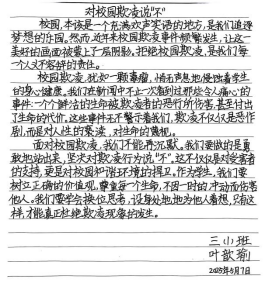 对校园欺凌说"不"
校园,本该是一个充满欢声笑语的地方,是我们追逐
梦想的乐园。然而,近年来校园欺凌事件频繁发生,让这一
美好的画面被蒙上了一层阴影。拒绝校园欺凌,是我们每
一个人义不容辞的责任。
校园欺凌,犹如一颗毒瘤,悄无声息地侵蚀着学生
的身心健康。我们在新闻中不止一次看到过那些令人痛心的
事件:一个个鲜活的生命被欺凌者的恶行所伤害,甚至付出
了生命的代价。这些事件无不警示着我们,欺凌不仅仅是恶作
剧,而是对人性的亵渎,对生命的蔑视。
面对校园欺凌,我们不能再沉默。我们要做的是勇
敢地站出来,坚决对欺凌行为说"不"。这不仅仅是对受害者
的支持,更是对校园和谐环境的捍卫。作为学生,我们要
树立正确的价值观,尊重每个生命,不因一时的冲动而伤害
他人。我们要学会换位思考,设身处地地为他人着想,只有这
样,才能真正杜绝欺凌现象的发生。
三(1)班
叶歆瑜
2025年5月7日